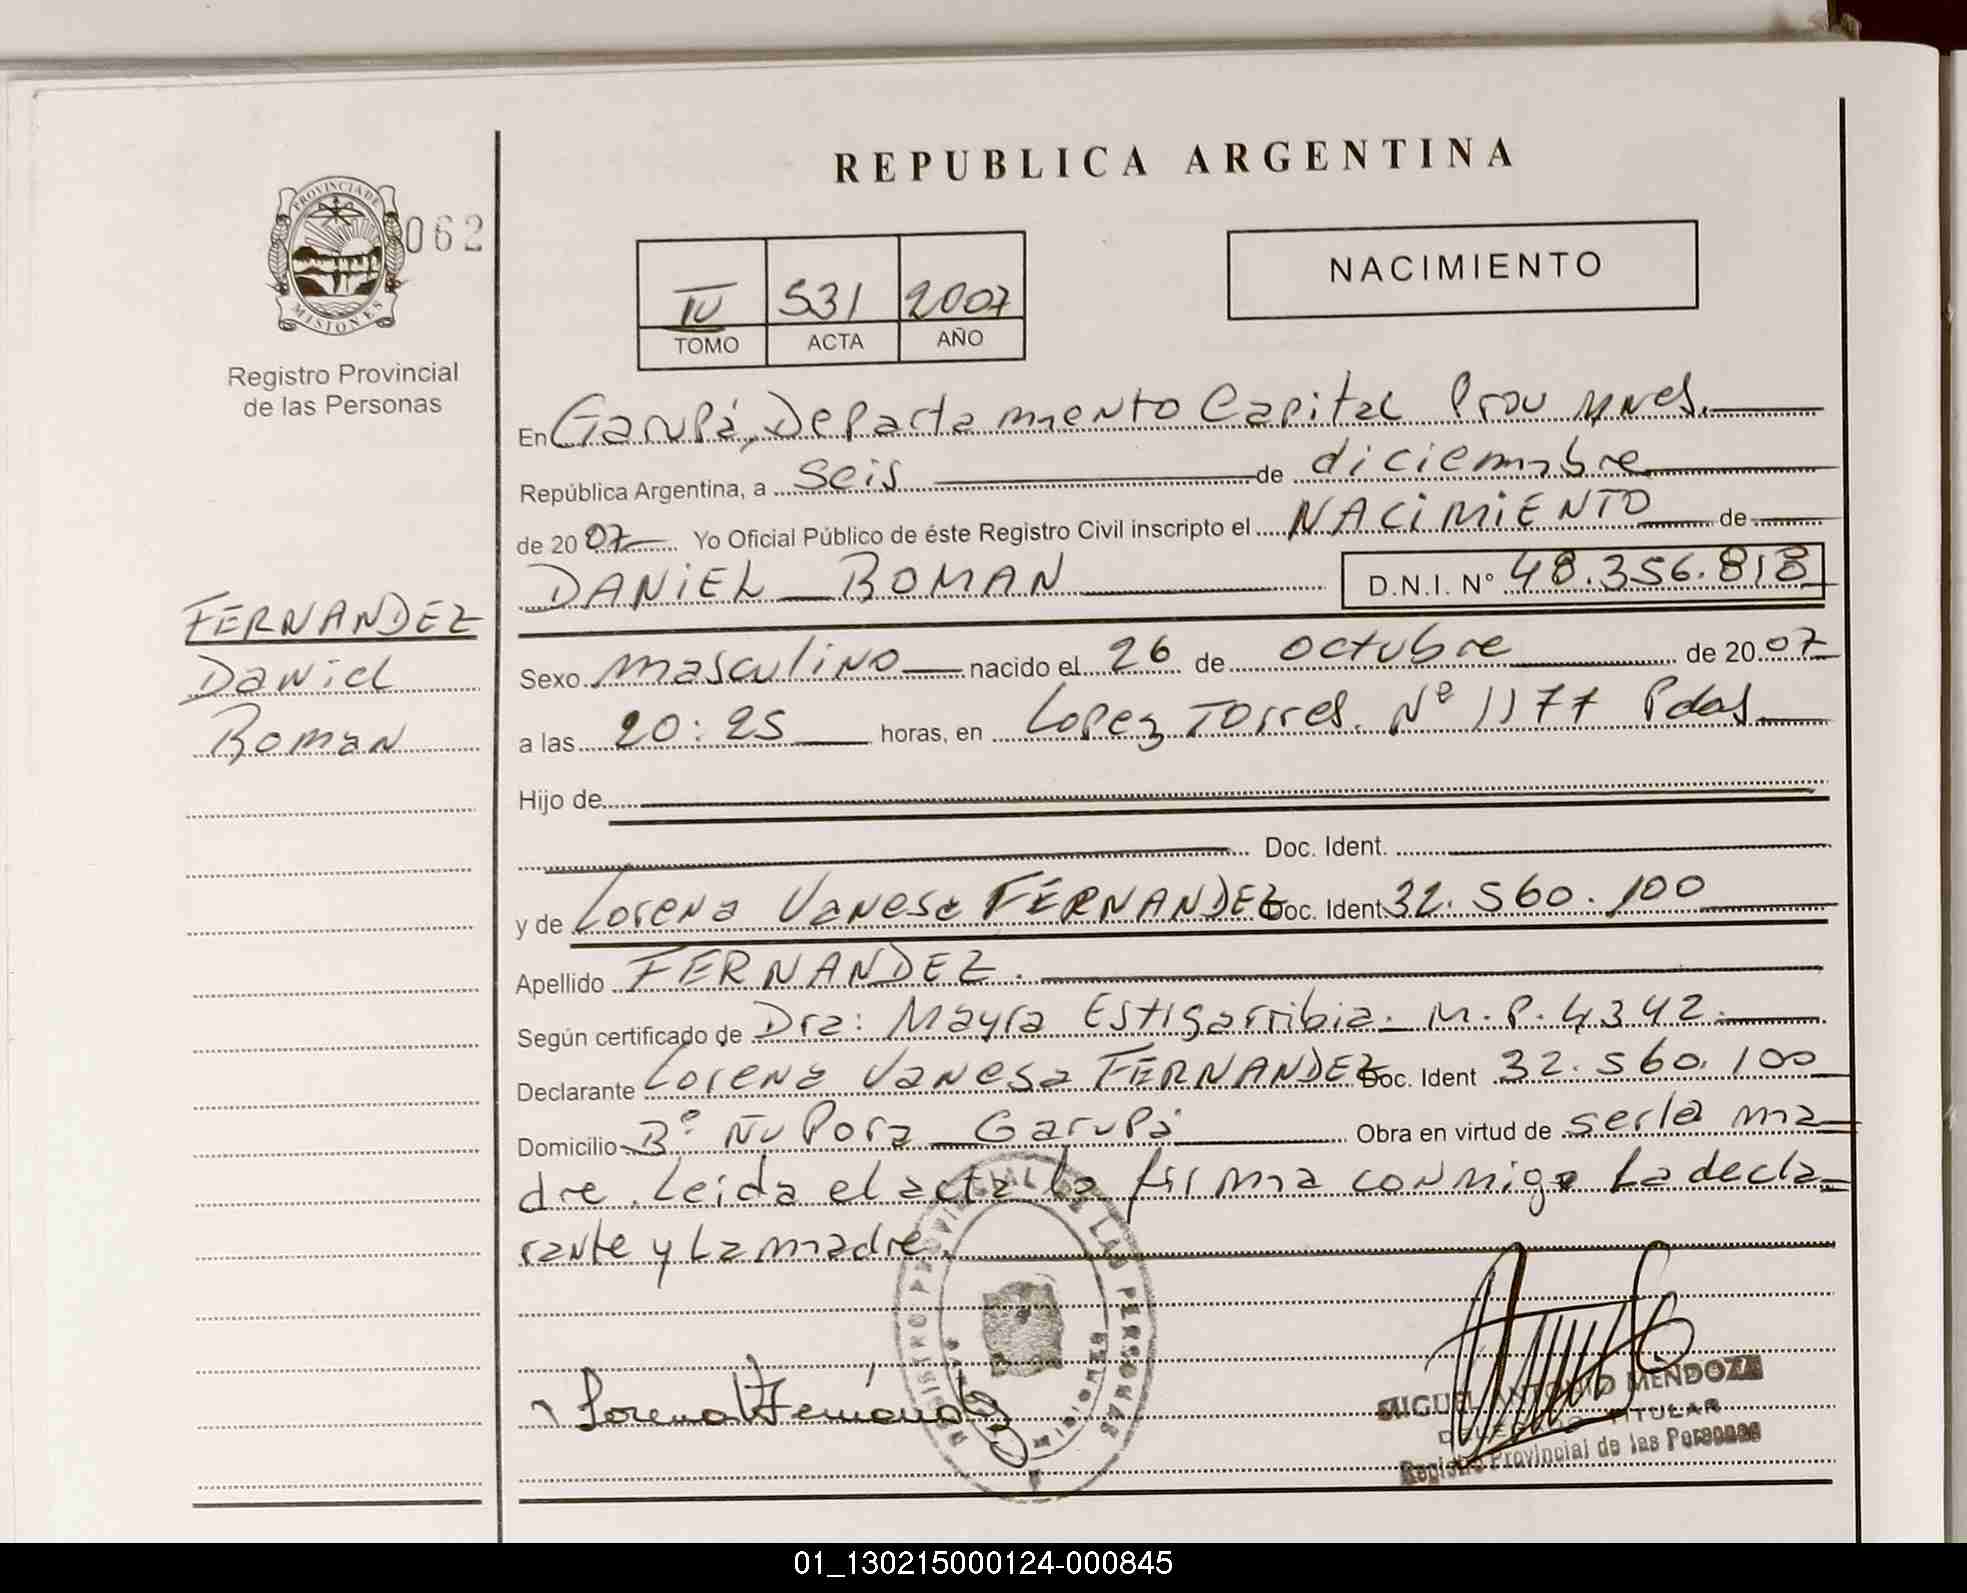 REPUBLICA ARGENTINA
PROVINCIA DE
MISIONES
062
Registro Provincial
de las Personas
NACIMIENTO
IV 531 2007
TOMO ACTA AÑO
En Garupá, Departamento Capital Prov Mnes.
República Argentina, a seis de diciembre
de 2007 Yo Oficial Público de éste Registro Civil inscripto el NACIMIENTO de
DANIEL ROMAN D.N.I. N° 48.356.818
FERNANDEZ
Daniel
Roman
Sexo masculino nacido el 26 de octubre de 2007
a las 20:25 horas, en Lopez Torres. Nº 1177 Pdas.
Hijo de
Doc. Ident.
y de Lorena Vanesa FERNANDEZ Doc. Ident. 32.560.100
Apellido FERNANDEZ.
Según certificado de Dra: Mayra Estigarribia. M.P. 4342.
Declarante Lorena Vanesa FERNANDEZ Doc. Ident 32.560.100
Domicilio Bº Ñu Pora Garupá Obra en virtud de ser la ma=
dre. Leida el acta la firma conmigo La decla=
rante y La madre.
REGISTRO PROVINCIAL DE LAS PERSONAS
MISIONES
MIGUEL ANTONIO MENDOZA
DELEGADO TITULAR
Registro Provincial de las Personas
01_130215000124-000845